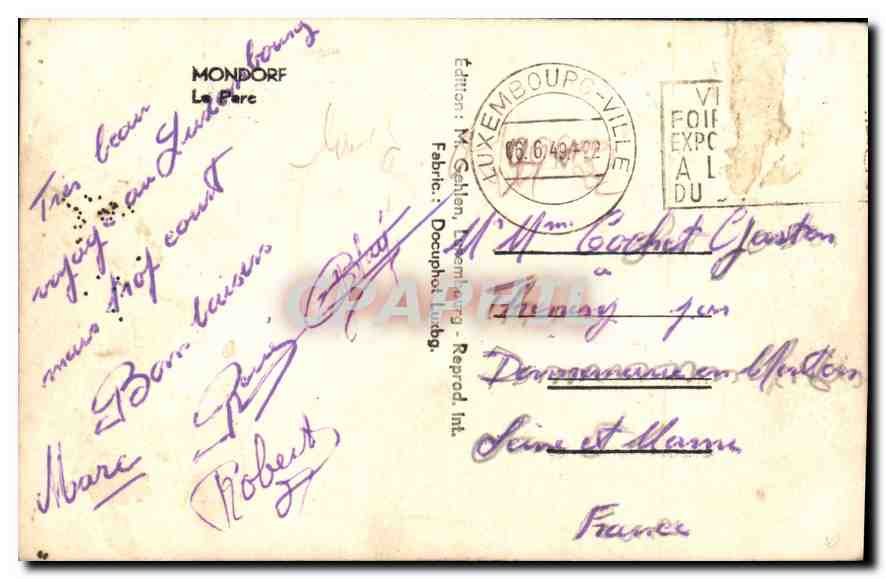 MONDORF
Le Parc
Très beau
voyage au Luxembourg
mais trop court
Bons baisers
Marc
René
Robert
Édition : M. Gehlen, Luxembourg - Reprod. Int.
Fabric.: Docuphot Luxbg.
LUXEMBOURG-VILLE
6.6.49
VI
FOIR
EXPO
A L
DU
Mr Mme Cochet Gaston
à
par
Donnemarie en Montois
Seine et Marne
France
CPAPHIL